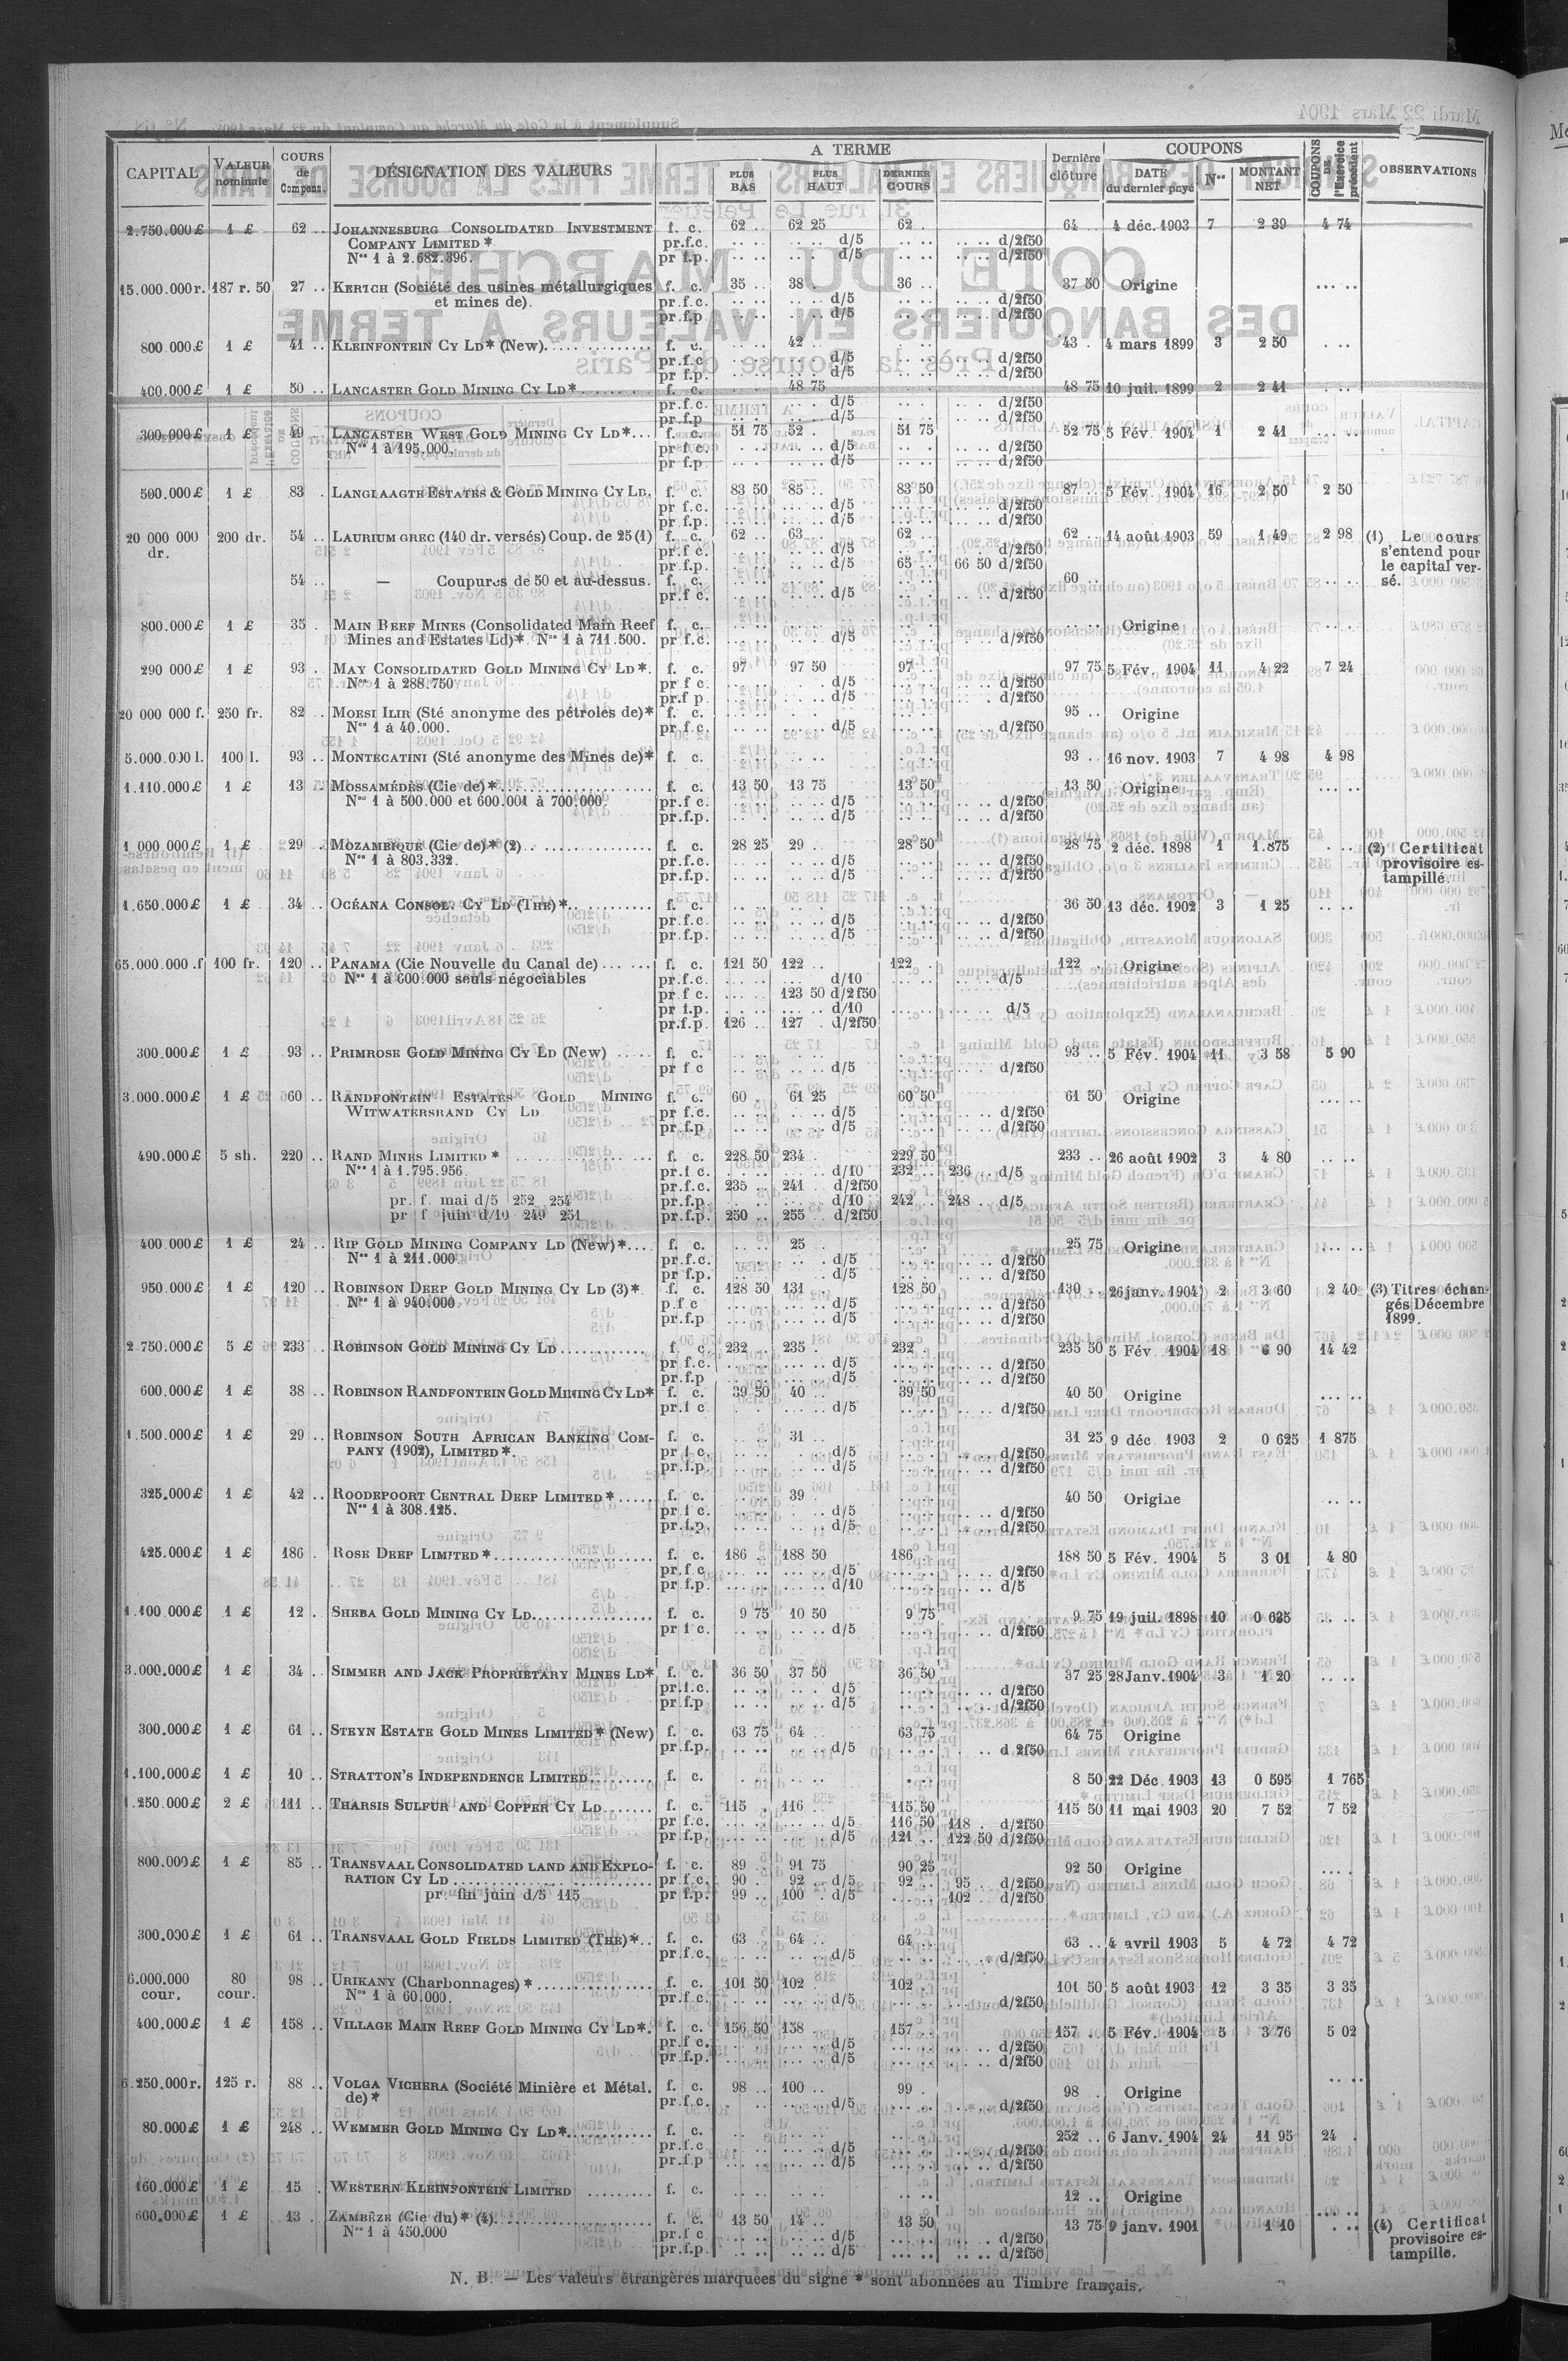 CAPITAL | VALEUR nominale | COURS de Compens. | DÉSIGNATION DES VALEURS | A TERME | PLUS BAS | PLUS HAUT | DERNIER COURS | Dernière clôture | COUPONS | DATE du dernier payé | Nos | MONTANT NET | COUPONS DE l'Exercice précédent | OBSERVATIONS
2.750.000 £ | 1 £ | 62 .. | JOHANNESBURG CONSOLIDATED INVESTMENT | f. c. | 62 .. | 62 25 | 62 . | 64 .. | 4 déc. 1903 | 7 | 2 39 | 4 74
COMPANY LIMITED * | pr.f.c. | d/5 | d/2f50
Nos 1 à 2.682.396. | pr f.p | d/5 | d/2f50
15.000.000 r. | 187 r. 50 | 27 .. | KERTCH (Société des usines métallurgiques | f. c. | 35 .. | 38 . | 36 .. | 37 50 | Origine | .... ..
et mines de). | pr.f.c. | d/5 | d/2f50
pr.f.p | d/5 | d/2f50
800 000 £ | 1 £ | 41 .. | KLEINFONTEIN CY LD* (New) | f. c. | 42 .. | 43 .. | 4 mars 1899 | 3 | 2 50
pr.f.c | d/5 | d/2f50
pr f.p. | d/5 | d/2f50
400.000 £ | 1 £ | 50 .. | LANCASTER GOLD MINING CY LD* | f. c. | 48 75 | 48 75 | 10 juil. 1899 | 2 | 2 41
pr.f.c. | d/5 | d/2f50
pr.f.p | d/5 | d/2f50
300.000 £ | 1 £ | 49 | LANCASTER WEST GOLD MINING CY LD* | f. c. | 51 75 | 52 . | 51 75 | 52 75 | 5 Fév. 1904 | 1 | 2 41
Nos 1 à 195.000. | pr f c. | d/5 | d/2f50
pr f.p | d/5 | d/2f50
500.000 £ | 1 £ | 83 . | LANGLAAGTE ESTATES & GOLD MINING CY LD. | f. c. | 83 50 | 85 .. | 83 50 | 87 .. | 5 Fév. 1904 | 16 | 2 50 | 2 50
pr f.c. | d/5 | d/2f50
pr.f.p. | d/5 | d/2f50
20 000 000 dr. | 200 dr. | 54 .. | LAURIUM GREC (140 dr. versés) Coup. de 25 (1) | f. c. | 62 .. | 63 | 62 .. | 62 .. | 14 août 1903 | 59 | 1 49 | 2 98 | (1) Le cours
pr.f c. | d/5 | d/2f50 | s'entend pour
pr.f.p. | d/5 | 65 .. | 66 50 d/2f50 | le capital ver-
54 .. | — Coupures de 50 et au-dessus. | f. c. | 60 .. | sé.
pr.f c. | d/5 | d/2f50
800.000 £ | 1 £ | 35 . | MAIN REEF MINES (Consolidated Main Reef | f. c. | Origine
Mines and Estates Ld)*. Nos 1 à 711.500. | pr f.c. | d/5 | d/2f50
290 000 £ | 1 £ | 93 . | MAY CONSOLIDATED GOLD MINING CY LD*. | f. c. | 97 | 97 50 | 97 .. | 97 75 | 5 Fév. 1904 | 11 | 4 22 | 7 24
Nos 1 à 288.750 | pr f c. | d/5 | d/2f50
pr.f p. | d/5 | d/2f50
20 000 000 f. | 250 fr. | 82 .. | MOESI ILIR (Sté anonyme des pétroles de)* | f. c. | 95 .. | Origine
Nos 1 à 40.000. | pr.f c. | d/5 | d/2f50
5.000.000 l. | 100 l. | 93 .. | MONTECATINI (Sté anonyme des Mines de)* | f. c. | 93 .. | 16 nov. 1903 | 7 | 4 98 | 4 98
1.110.000 £ | 1 £ | 13 .. | MOSSAMÉDÈS (Cie de)* | f. c. | 13 50 | 13 75 | 13 50 | 13 50 | Origine
Nos 1 à 500.000 et 600.001 à 700.000. | pr.f c. | d/5 | d/2f50
pr.f.p. | d/5 | d/2f50
1 000.000 £ | 1 £ | 29 .. | MOZAMBIQUE (Cie de)* (2) | f. c. | 28 25 | 29 .. | 28 50 | 28 75 | 2 déc. 1898 | 1 | 1.875 | (2) Certificat
Nos 1 à 803.332. | pr.f.c. | d/5 | d/2f50 | provisoire es-
pr.f.p. | d/5 | d/2f50 | tampillé.
1.650.000 £ | 1 £ | 34 .. | OCÉANA CONSOL. CY LD (THE)* | f. c. | 36 50 | 13 déc. 1902 | 3 | 1 25
pr.f.c. | d/5 | d/2f50
pr.f.p. | d/5 | d/2f50
65.000.000 .f | 100 fr. | 120 .. | PANAMA (Cie Nouvelle du Canal de) | f. c. | 121 50 | 122 .. | 122 . | 122 | Origine
Nos 1 à 600.000 seuls négociables | pr.f.c. | d/10 | d/5
pr f c. | 123 50 d/2f50
pr f.p. | d/10 | d/5
pr.f.p | 126 .. | 127 . d/2f50
300.000 £ | 1 £ | 93 .. | PRIMROSE GOLD MINING CY LD (New) | f. c. | 93 .. | 5 Fév. 1904 | 11 | 3 58 | 5 90
pr f c | d/5 | d/2f50
3.000.000 £ | 1 £ | 60 .. | RANDFONTEIN ESTATES GOLD MINING | f. c. | 60 . | 61 25 | 60 50 | 61 50 | Origine
WITWATERSRAND CY LD | pr f.c. | d/5 | d/2f50
pr f.p | d/5 | d/2f50
490.000 £ | 5 sh. | 220 .. | RAND MINES LIMITED * | f. c. | 228 50 | 234 .. | 229 50 | 233 .. | 26 août 1902 | 3 | 4 80
Nos 1 à 1.795.956. | pr.f c. | d/10 | 232 .. | 236 .. d/5
pr.f.c. | 235 .. | 241 .. d/2f50
pr. f. mai d/5 252 254 | pr.f.p. | d/10 | 242 .. | 248 .. d/5
pr f juin d/10 249 251 | pr.f.p. | 250 .. | 255 .. d/2f50
400.000 £ | 1 £ | 24 .. | RIP GOLD MINING COMPANY LD (New)* | f. c. | 25 .. | 25 75 | Origine
Nos 1 à 211.000 | pr.f.c. | d/5 | d/2f50
pr f.p. | d/5 | d/2f50
950.000 £ | 1 £ | 120 .. | ROBINSON DEEP GOLD MINING CY LD (3)* | f. c. | 128 50 | 131 .. | 128 50 | 130 .. | 26 janv. 1904 | 2 | 3 60 | 2 40 | (3) Titres échan-
Nos 1 à 940.000. | p.f c | d/5 | d/2f50 | gés Décembre
pr f.p | d/5 | d/2f50 | 1899.
2 750.000 £ | 5 £ | 233 .. | ROBINSON GOLD MINING CY LD | f. c. | 232 .. | 235 . | 232 .. | 235 50 | 5 Fév. 1904 | 18 | 6 90 | 14 42
pr f.c. | d/5 | d/2f50
pr.f.p | d/5 | d/2f50
600.000 £ | 1 £ | 38 .. | ROBINSON RANDFONTEIN GOLD MINING CY LD* | f. c. | 39 50 | 40 .. | 39 50 | 40 50 | Origine
pr.f c | d/5 | d/2f50
1.500.000 £ | 1 £ | 29 .. | ROBINSON SOUTH AFRICAN BANKING COM- | f. c. | 31 .. | 31 25 | 9 déc 1903 | 2 | 0 625 | 1 875
PANY (1902), LIMITED*. | pr f.c. | d/5 | d/2f50
pr.f.p. | d/5 | d/2f50
325.000 £ | 1 £ | 42 .. | ROODEPOORT CENTRAL DEEP LIMITED* | f. c. | 39 . | 40 50 | Origine
Nos 1 à 308.125. | pr f c. | d/5 | d/2f50
pr.f.p. | d/5 | d/2f50
425.000 £ | 1 £ | 186 . | ROSE DEEP LIMITED* | f. c. | 186 . | 188 50 | 186 | 188 50 | 5 Fév. 1904 | 5 | 3 01 | 4 80
pr f c | d/5 | d/2f50
pr f.p. | d/10 | d/5
1.100.000 £ | 1 £ | 12 . | SHEBA GOLD MINING CY LD. | f. c. | 9 75 | 10 50 | 9 75 | 9 75 | 19 juil. 1898 | 10 | 0 625
pr f c | d/5 | d/2f50
3.000.000 £ | 1 £ | 34 .. | SIMMER AND JACK PROPRIETARY MINES LD* | f. c. | 36 50 | 37 50 | 36 50 | 37 25 | 28 Janv. 1904 | 3 | 1 20
pr.f.c. | d/5 | d/2f50
pr f.p | d/5 | d/2f50
300.000 £ | 1 £ | 61 .. | STEYN ESTATE GOLD MINES LIMITED* (New) | f. c. | 63 75 | 64 .. | 63 75 | 64 75 | Origine
pr.f.p. | d/5 | d 2f50
1.100.000 £ | 1 £ | 10 .. | STRATTON'S INDEPENDENCE LIMITED | f. c. | 8 50 | 22 Déc. 1903 | 13 | 0 595 | 1 765
1.250.000 £ | 2 £ | 111 .. | THARSIS SULFUR AND COPPER CY LD | f. c. | 115 . | 116 .. | 115 50 | 115 50 | 11 mai 1903 | 20 | 7 52 | 7 52
pr f.c. | d/5 | 116 50 | 118 . d/2f50
pr f.p. | d/5 | 121 .. | 122 50 d/2f50
800.000 £ | 1 £ | 85 .. | TRANSVAAL CONSOLIDATED LAND AND EXPLO- | f. c. | 89 .. | 91 75 | 90 25 | 92 50 | Origine
RATION CY LD | pr.f.c. | 90 . | 92 .. d/5 | 92 .. | 95 .. d/2f50
pr. fin juin d/5 115 | pr f.p. | 99 .. | 100 . d/5 | 102 .. d/2f50
300.000 £ | 1 £ | 61 .. | TRANSVAAL GOLD FIELDS LIMITED (THE)* | f. c. | 63 .. | 64 .. | 64 .. | 63 .. | 4 avril 1903 | 5 | 4 72 | 4 72
pr.f.c. | d/5 | d/2f50
6.000.000 cour. | 80 cour. | 98 .. | URIKANY (Charbonnages) * | f. c. | 101 50 | 102 .. | 102 .. | 101 50 | 5 août 1903 | 12 | 3 35 | 3 35
Nos 1 à 60.000. | pr.f c. | d/5 | d/2f50
400.000 £ | 1 £ | 158 .. | VILLAGE MAIN REEF GOLD MINING CY LD*. | f. c. | 156 50 | 158 .. | 157 .. | 157 .. | 5 Fév. 1904 | 5 | 3 76 | 5 02
pr.f c. | d/5 | d/2f50
pr f.p. | d/5 | d/2f50
6.250.000 r. | 125 r. | 88 .. | VOLGA VICHERA (Société Minière et Métal. | f. c. | 98 .. | 100 .. | 99 . | 98 .. | Origine
de)* | pr.f.c. | d/5 | d/2f50
80.000 £ | 1 £ | 248 .. | WEMMER GOLD MINING CY LD* | f. c. | 252 .. | 6 Janv. 1904 | 24 | 11 95 | 24 .
pr.f.c | d/5 | d/2f50
pr.f.p | d/5 | d/2f50
160.000 £ | 1 £ | 15 .. | WESTERN KLEINFONTEIN LIMITED | f. c. | 12 .. | Origine
600.000 £ | 1 £ | 13 .. | ZAMBÈZE (Cie du)* (4) | f. c. | 13 50 | 14 .. | 13 50 | 13 75 | 9 janv. 1901 | 1 10 | (4) Certificat
Nos 1 à 450.000 | pr.f c | d/5 | d/2f50 | provisoire es-
pr.f.p. | d/5 | d/2f50 | tampille.
N. B. — Les valeurs étrangères marquées du signe * sont abonnées au Timbre français.